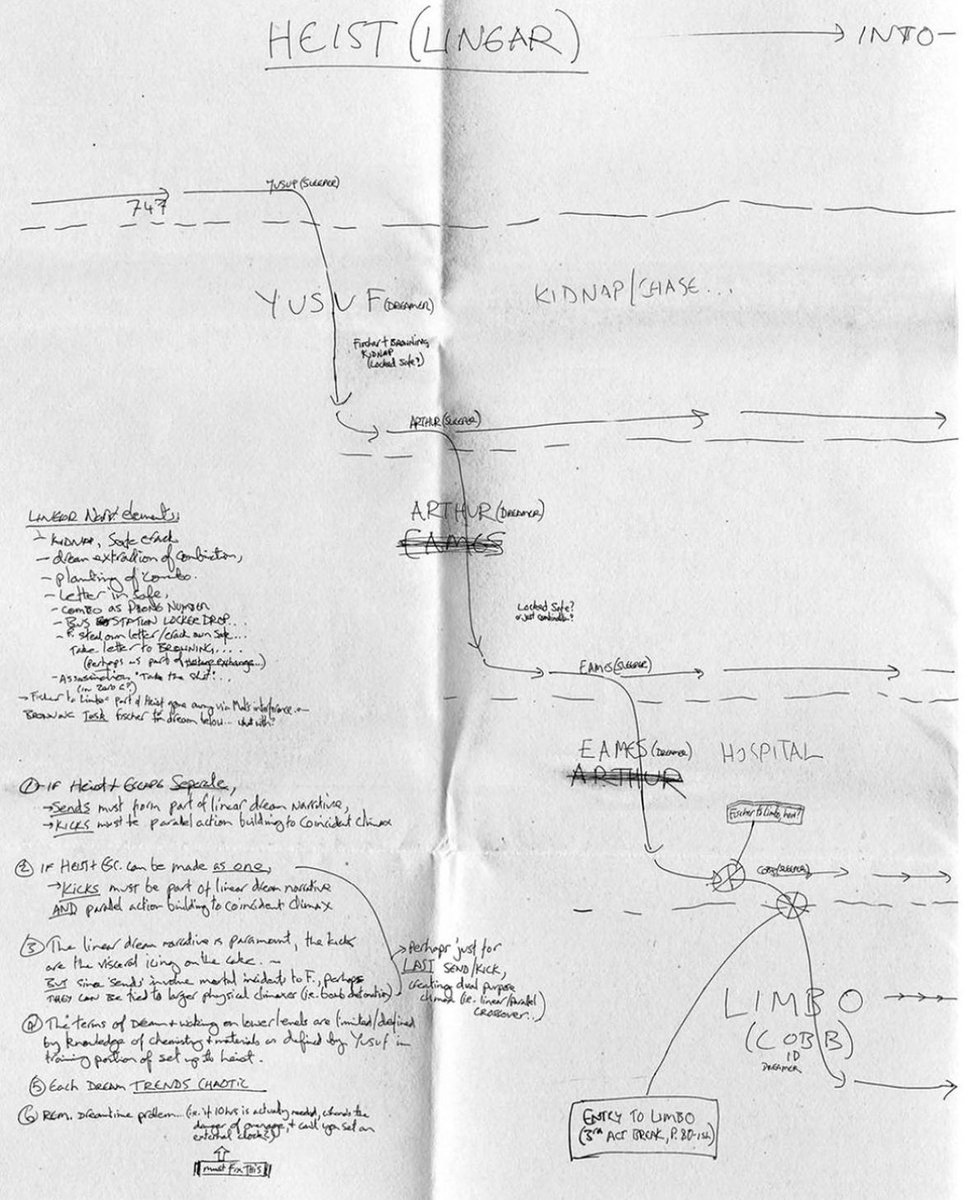 HEIST (LINEAR)
INTO-
YUSUF (SLEEPER)
747
YUSUF (DREAMER)
KIDNAP/CHASE...
Fischer + BROWNING
KIDNAP
(Locked Safe?)
ARTHUR (SLEEPER)
ARTHUR (DREAMER)
EAMES
Locked Safe?
or just combination?
EAMES (SLEEPER)
EAMES (DREAMER)
ARTHUR
HOSPITAL
Fischer to Limbo, here?
COBB (SLEEPER)
LIMBO
(COBB)
DREAMER
ENTRY TO LIMBO
(3rd ACT BREAK, P. 80-ish)
LINEAR Narr. elements,
- KIDNAP, Safe crack
- dream extraction of combination,
- planting of combo.
- letter in safe,
- combo as PHONE NUMBER
- BUS STATION LOCKER DROP...
- F. steal own letter/crack own safe....
Take letter to BROWNING....
(perhaps as part of exchange...)
- Assassination "Take the shot"...
(in zero G?)
- Fischer to Limbo part of Heist gone awry via Mal's interference
BROWNING Fischer dream below...
① IF Heist + Escape Separate,
→ Sends must form part of linear dream narrative,
→ KICKS must be parallel action building to coincident climax
② IF HEIST + ESC. can be made as one,
→ KICKS must be part of linear dream narrative
AND parallel action building to coincident climax
③ The linear dream narrative is paramount, the kicks
are the visceral icing on the cake. —
BUT since 'sends' involve mortal incidents to F., perhaps
THEY CAN BE tied to larger physical climaxes (i.e. bomb detonation)
→ Perhaps just for
LAST SEND/KICK,
creating dual purpose
climax (i.e. linear/parallel
CROSSOVER...)
④ The terms of Dream + waking on lower levels are limited/defined
by knowledge of chemistry + materials as defined by Yusuf in
training portion of set up to heist.
⑤ Each Dream TRENDS CHAOTIC
⑥ REM. Dreamtime problem... (i.e. if 10 hrs is actually needed, where's the
danger of + can't you set an
external clock?)
must fix this